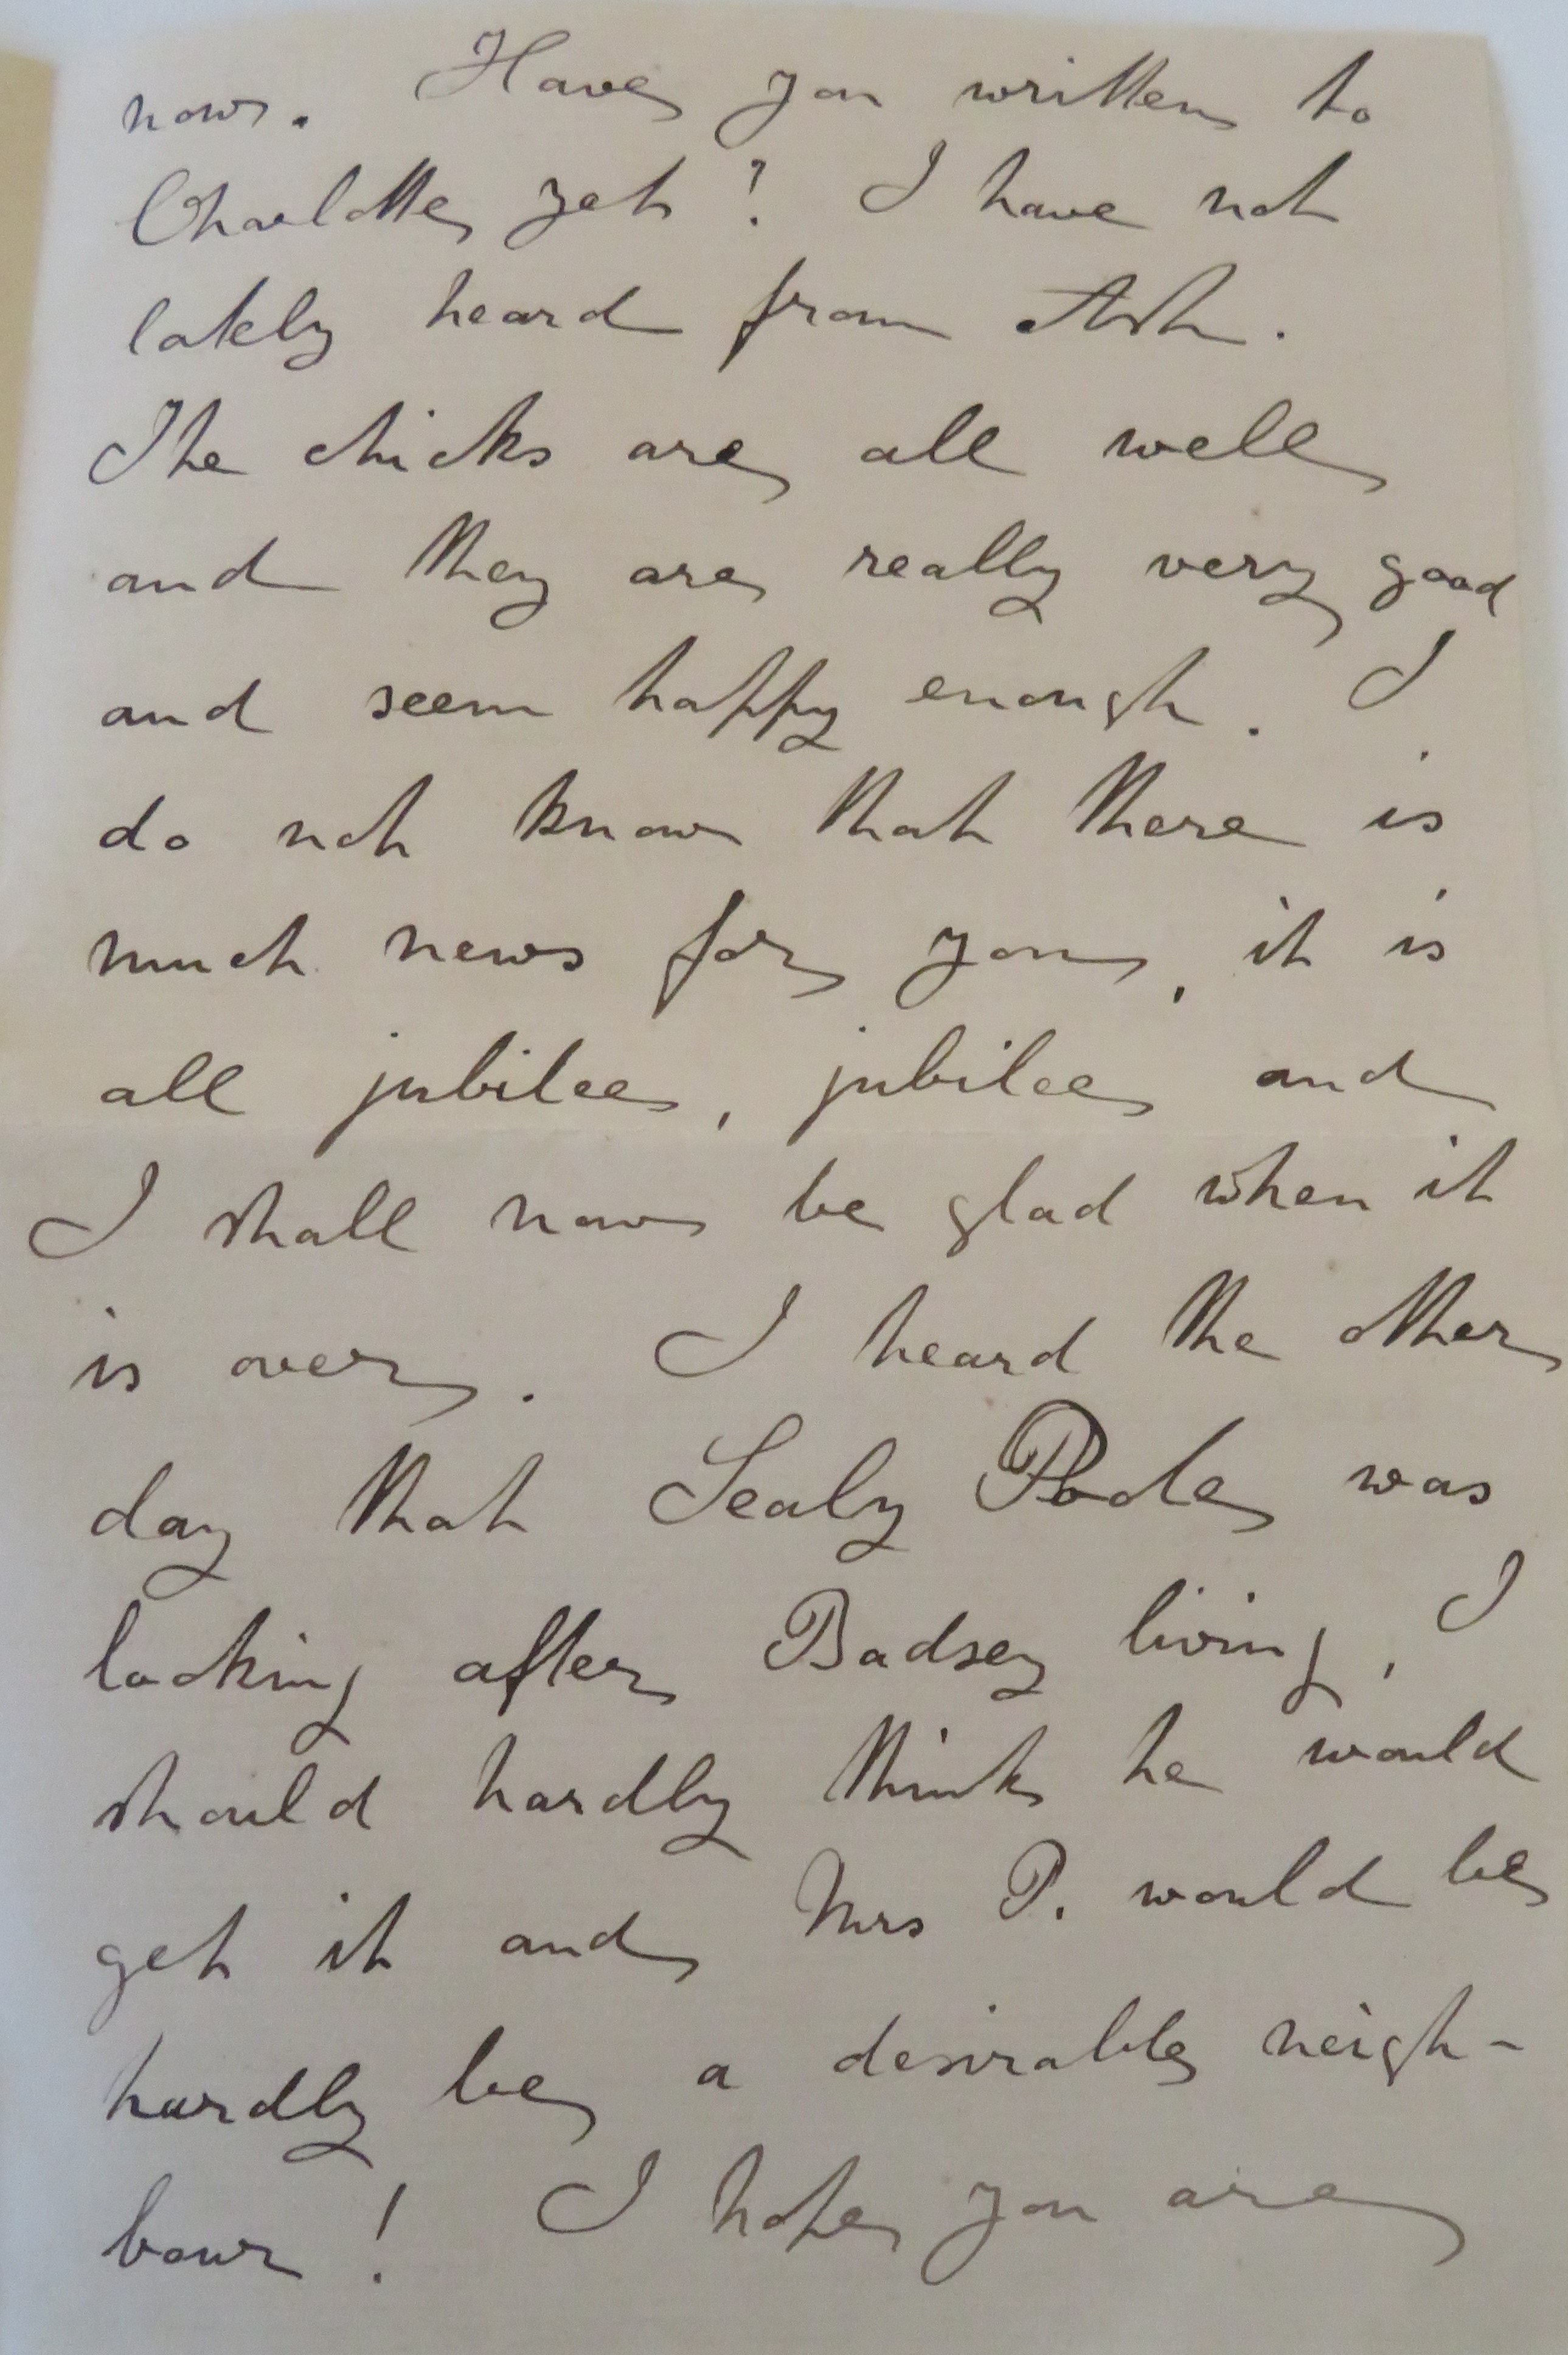 now. Have you written to
Charlotte yet? I have not
lately heard from Ash.
The chicks are all well
and they are really very good
and seem happy enough. I
do not know that there is
much news for you, it is
all jubilee, jubilee and
I shall now be glad when it
is over. I heard the other
day that Sealy Poole was
looking after Badsey living, I
should hardly think he would
get it and Mrs P. would be
hardly be a desirable neigh-
bour! I hope you are